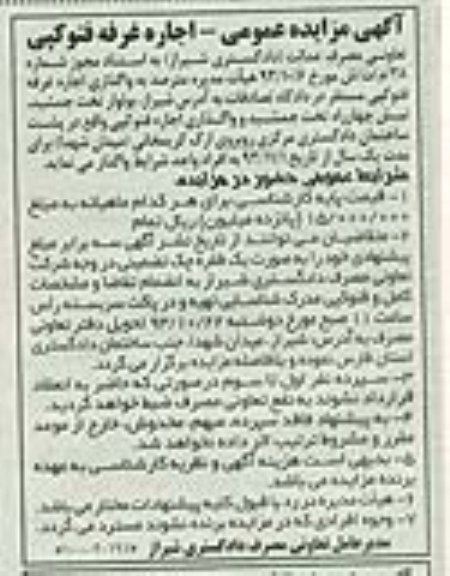 آگهی مزایده عمومی – اجاره غرفه فتوکپی
تعاونی مصرف عدالت (دادگستری شیراز) به استناد مجوز شماره
مورخ هیأت مدیره درصدد به واگذاری اجاره غرفه
فتوکپی مستقر در دادگاه تصادفات به آدرس شیراز، بولوار تخت جمشید،
نبش چهارراه تخت جمشید و واگذاری اجاره فتوکپی واقع در پشت
ساختمان دادگستری مرکزی روبروی ارگ کریمخانی (میدان شهدا) برای
مدت یک سال از تاریخ ۹۳/۱۱/۱ به افراد واجد شرایط واگذار می نماید.
شرایط عمومی حضور در مزایده:
۱- قیمت پایه کارشناسی برای هر کدام ماهیانه به مبلغ
۱۵/۰۰۰/۰۰۰ (پانزده میلیون) ریال تمام
۲- متقاضیان می توانند از تاریخ نشر آگهی سه برابر مبلغ
پیشنهادی خود را به صورت یک فقره چک تضمینی در وجه شرکت
تعاونی مصرف دادگستری شیراز به انضمام تقاضا و مشخصات
کامل و فتوکپی مدرک شناسایی تهیه و در پاکت سربسته رأس
ساعت ۱۱ صبح مورخ دوشنبه ۹۳/۱۰/۲۲ تحویل دفتر تعاونی
مصرف به آدرس: شیراز، میدان شهدا، جنب ساختمان دادگستری
استان فارس، نموده و بلافاصله مزایده برگزار می گردد.
۳- سپرده نفر اول تا سوم در صورتی که حاضر به انعقاد
قرارداد نشوند به نفع تعاونی مصرف ضبط خواهد گردید.
۴- به پیشنهاد فاقد سپرده، مبهم، مخدوش، خارج از موعد
مقرر و مشروط ترتیب اثر داده نخواهد شد.
۵- بدیهی است هزینه آگهی و نظریه کارشناسی به عهده
برنده مزایده می باشد.
۶- هیأت مدیره در رد یا قبول کلیه پیشنهادات مختار می باشد.
۷- وجوه افرادی که در مزایده برنده نشوند مسترد می گردد.
مدیرعامل تعاونی مصرف دادگستری شیراز